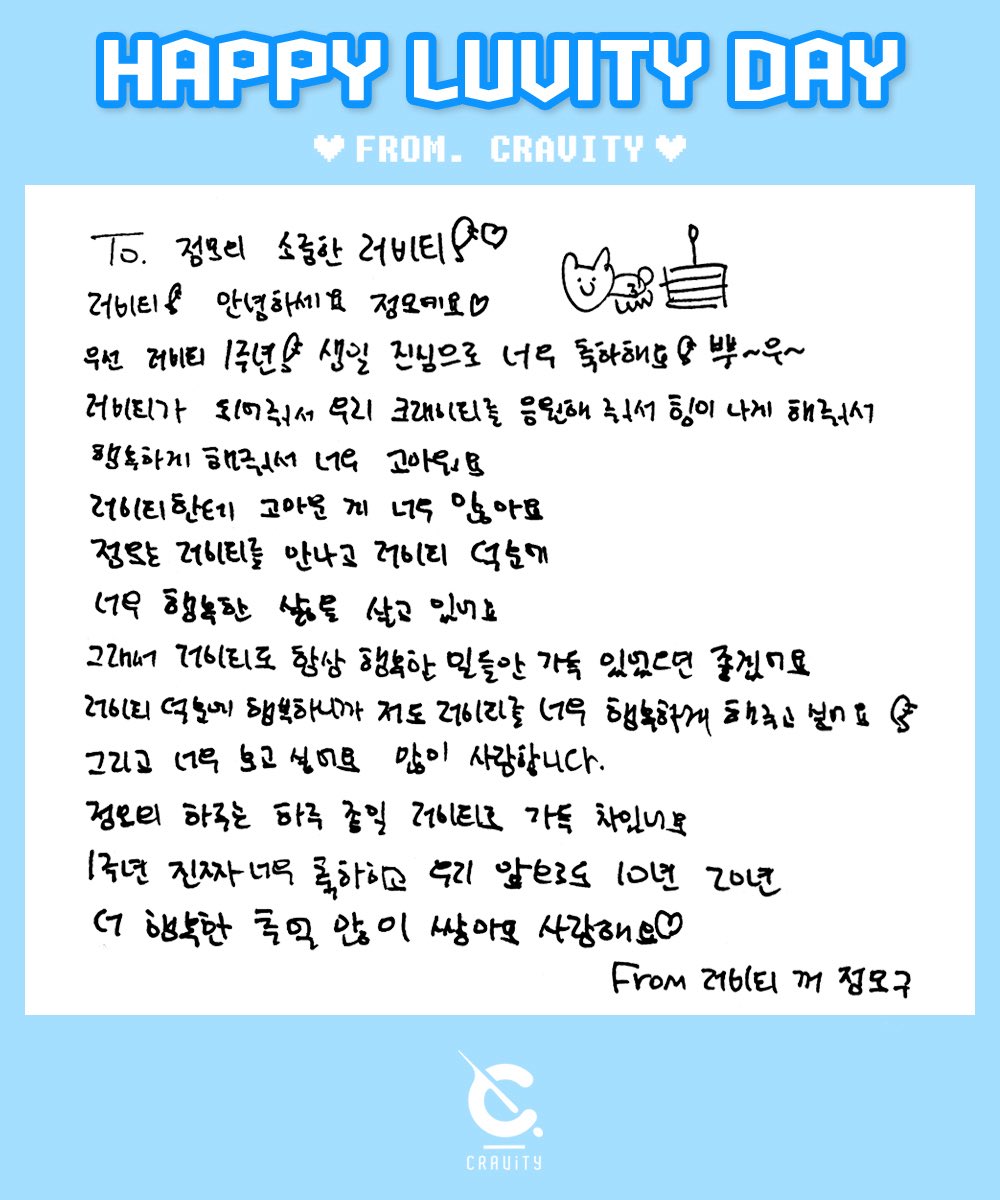 HAPPY LUVITY DAY
FROM. CRAVITY
To. 정모의 소중한 러비티!♡
러비티! 안녕하세요 정모예요♡
우선 러비티 1주년! 생일 진심으로 너무 축하해요! 뿌~우~
러비티가 되어줘서 우리 크래비티를 응원해 줘서 힘이 나게 해줘서
행복하게 해줘서 너무 고마워요
러비티한테 고마운 게 너무 많아요
정모는 러비티를 만나고 러비티 덕분에
너무 행복한 삶을 살고 있어요
그래서 러비티도 항상 행복한 일들만 가득 있었으면 좋겠어요
러비티 덕분에 행복하니까 저도 러비티를 너무 행복하게 해주고 싶어요!
그리고 너무 보고 싶어요 많이 사랑합니다.
정모의 하루는 하루 종일 러비티로 가득 차있어요
1주년 진짜 너무 축하하고 우리 앞으로도 10년 20년
더 행복한 추억 많이 쌓아요 사랑해요♡
From 러비티 꺼 정모구
C.
CRAViTY